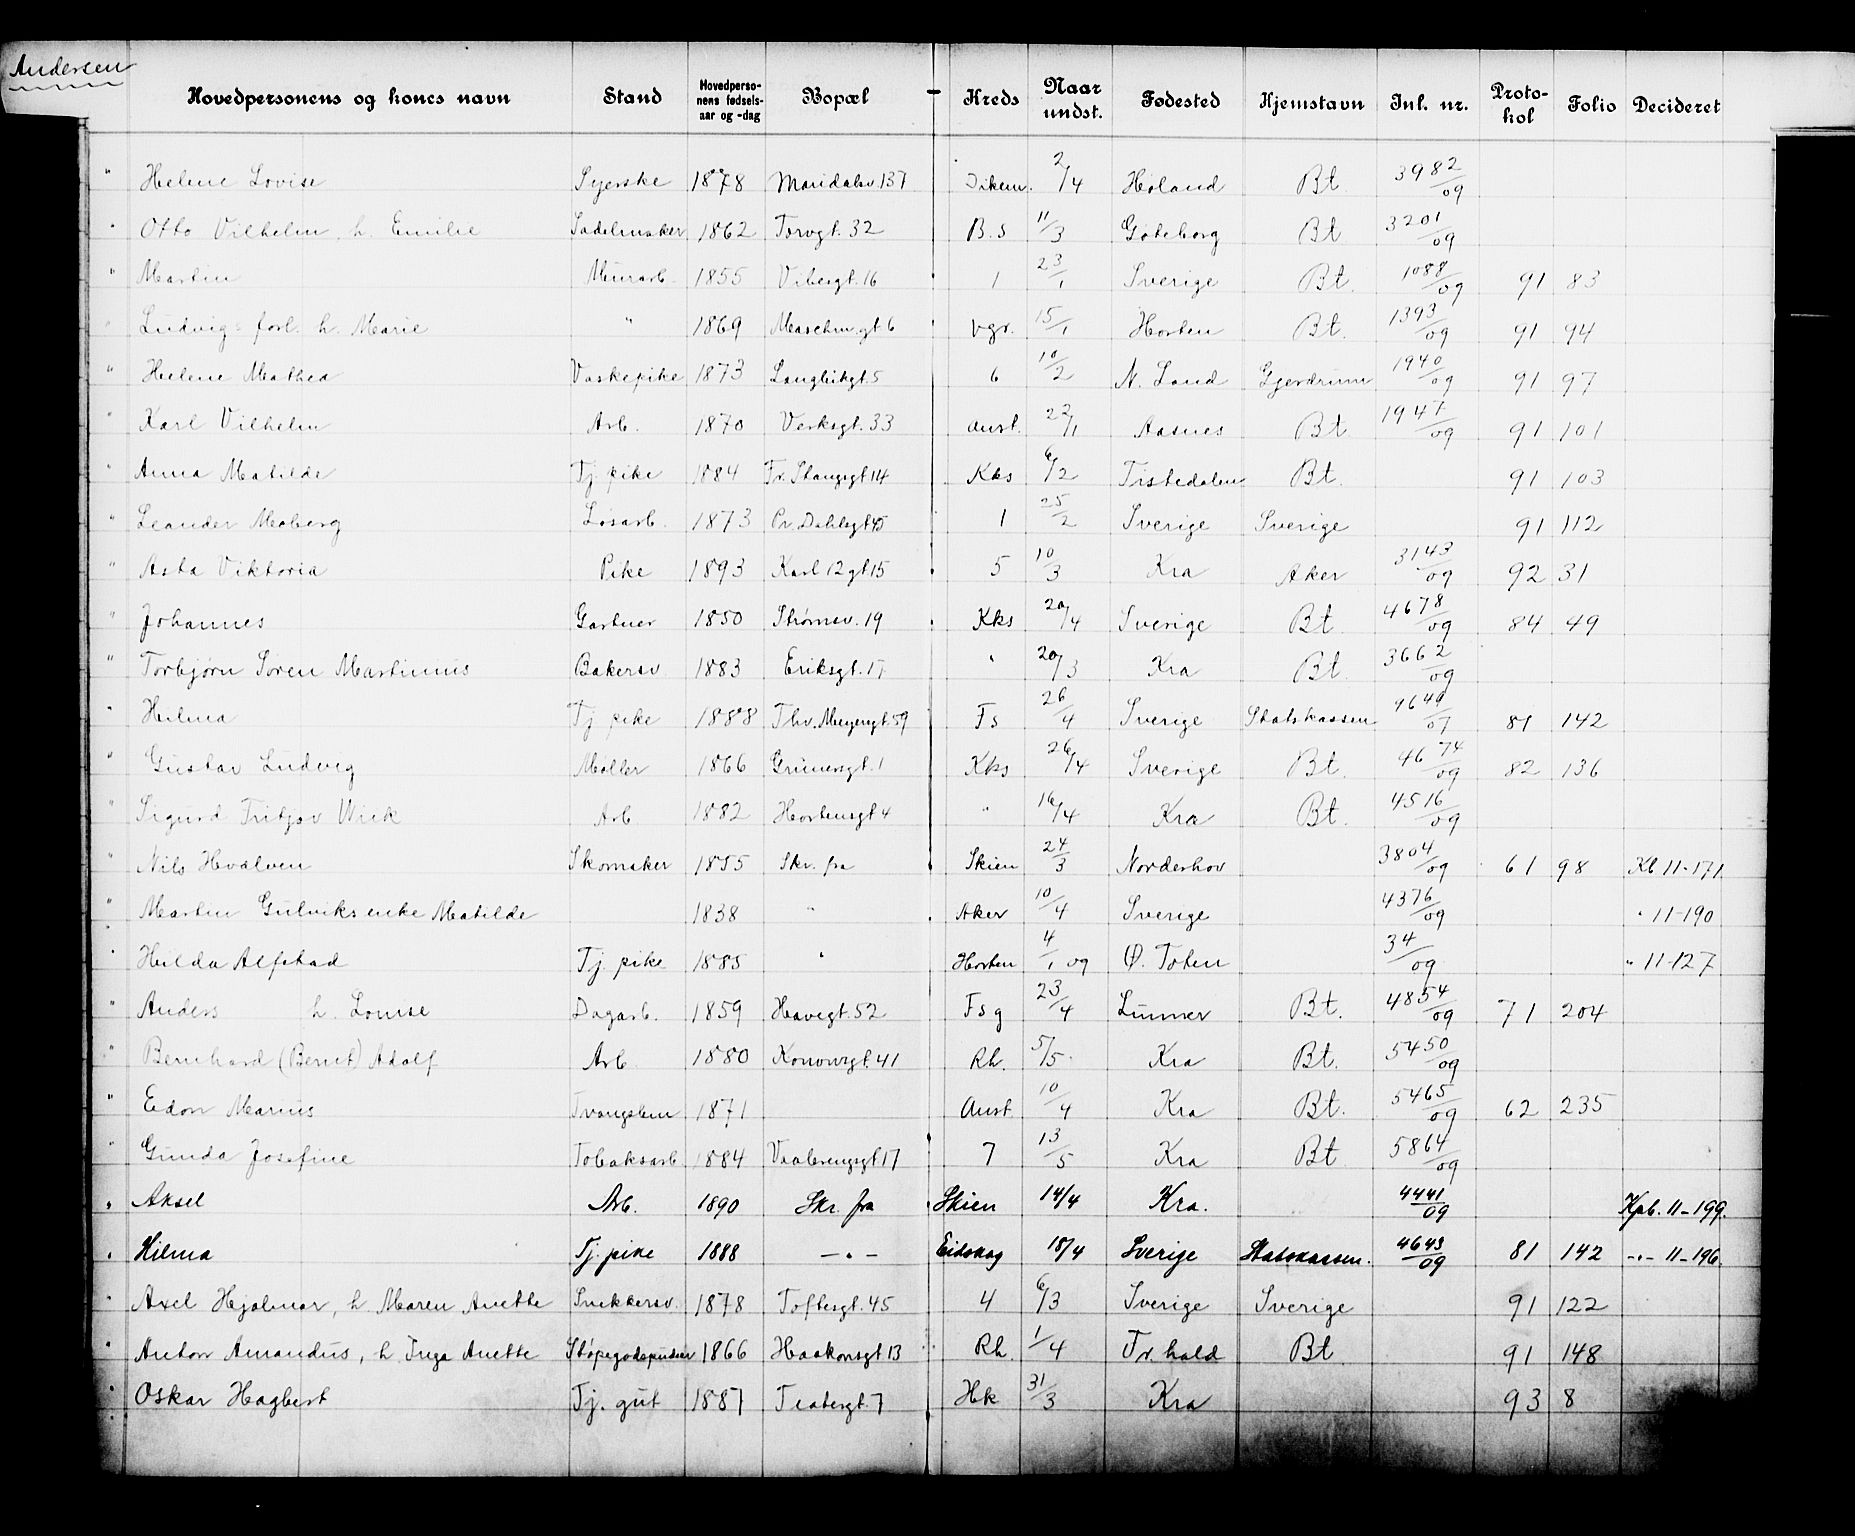 Andersen
Hovedpersonens og kones navn Stand Hovedperso-nens fødsels-aar og -dag Bopæl Kreds Naar undst. Fødested Hjemstavn Inl. nr. Proto-kol Folio Decideret
" Helene Lovise Syerske 1878 Maridalsv. 137 Dikem. 2/4 Høland Bt. 3982/09
" Otto Vilhelm, h. Emilie Sadelmaker 1862 Torvgt. 32 B.s 11/3 Gøteborg Bt 3201/09
" Martin Murarb. 1855 Vibesgt. 16 1 23/1 Sverige Bt. 1088/09 91 83
" Ludvig forl. h. Marie " 1869 gt 6 Vgr. 15/1 Horten Bt. 1393/09 91 94
" Helene Mathea Vaskepike 1873 Langleikgt. 5 6 10/2 N. Land Gjerdrum 1940/09 91 97
" Karl Vilhelm Arb. 1870 Verksgt. 33 Anst. 22/1 Aasnes Bt. 1947/09 91 101
" Anna Matilde Tj. pike 1884 Fr. Stangsgt 14 Kks 6/2 Tistedalen Bt. 91 103
" Leander Moberg Løsarb. 1873 Pr. Dahlsgt 45 1 25/2 Sverige Sverige 91 112
" Asta Viktoria Pike 1893 Karl 12 gt 15 5 10/3 Kra Aker 3143/09 92 31
" Johannes Gartner 1850 Strømsv. 19 Kks 20/4 Sverige Bt. 4678/09 84 49
" Torbjørn Søren Martinius Bakersv. 1883 Eriksgt. 17 " 20/3 Kra Bt. 3662/09
" Hilma Tj. pike 1888 Thv. Meyersgt. 59 Fs 26/4 Sverige Statskassen 81 142
" Gustav Ludvig Møller 1866 Grünersgt. 1 Kks 26/4 Sverige Bt. 4674/09 82 136
" Sigurd Fritjov Wiik Arb 1882 Hortensgt 4 " 16/4 Kra Bt. 4516/09
" Nils Hvalven Skomaker 1855 Skr. fra Skien 24/3 Norderhov 3804/09 61 98 Kb 11-171
" Martin Gulviks enke Matilde 1838 " Aker 10/4 Sverige 4376/09 " 11-190
" Hilda Alfstad Tj. pike 1885 " Horten 4/1 09 Ø. Toten 34/09 " 11-127
" Anders h. Louise Dagarb. 1859 Havegt. 52 Fsg 23/4 Lunner Bt. 4854/09 71 204
" Bernhard (Bernt) Adolf Arb. 1880 Konowsgt. 41 Rh. 5/5 Kra Bt. 5450/09
" Edon Marius Tvangslem 1871 Anst. 10/4 Kra Bt. 5465/09 62 235
" Gunda Josefine Tobaksarb. 1884 Vaalerengsgt 17 7 13/5 Kra Bt. 5864/09
" Aksel Arb. 1890 Skr. fra Skien 14/4 Kra. 4441/09 Kpb. 11-199.
" Hilma Tj. pike 1888 —"— Eidskog 18/4 Sverige Statskassen. 4643/09 81 142 -"- 11-196.
" Axel Hjalmar, h Maren Anette Snekkersv. 1878 Toftesgt. 45 4 6/3 Sverige Sverige 91 122
" Anton Amandus, h. Inga Anette Støpegodspudser 1866 Haakonsgt 13 Rh. 1/4 Fr. hald Bt 91 148
" Oskar Hagbert Tj. gut 1887 Teatergt. 7 Hk 31/3 Kra 93 8